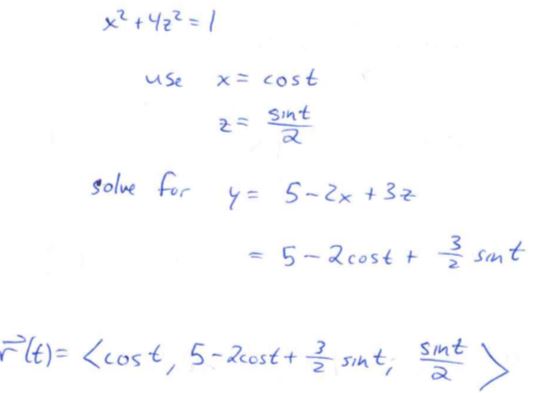 x² + 4z² = 1
use x = cos t
z = sin t / 2
solve for y = 5 - 2x + 3z
= 5 - 2cos t + 3/2 sin t
r⃗(t) = ⟨cos t, 5 - 2cos t + 3/2 sin t, sin t / 2⟩